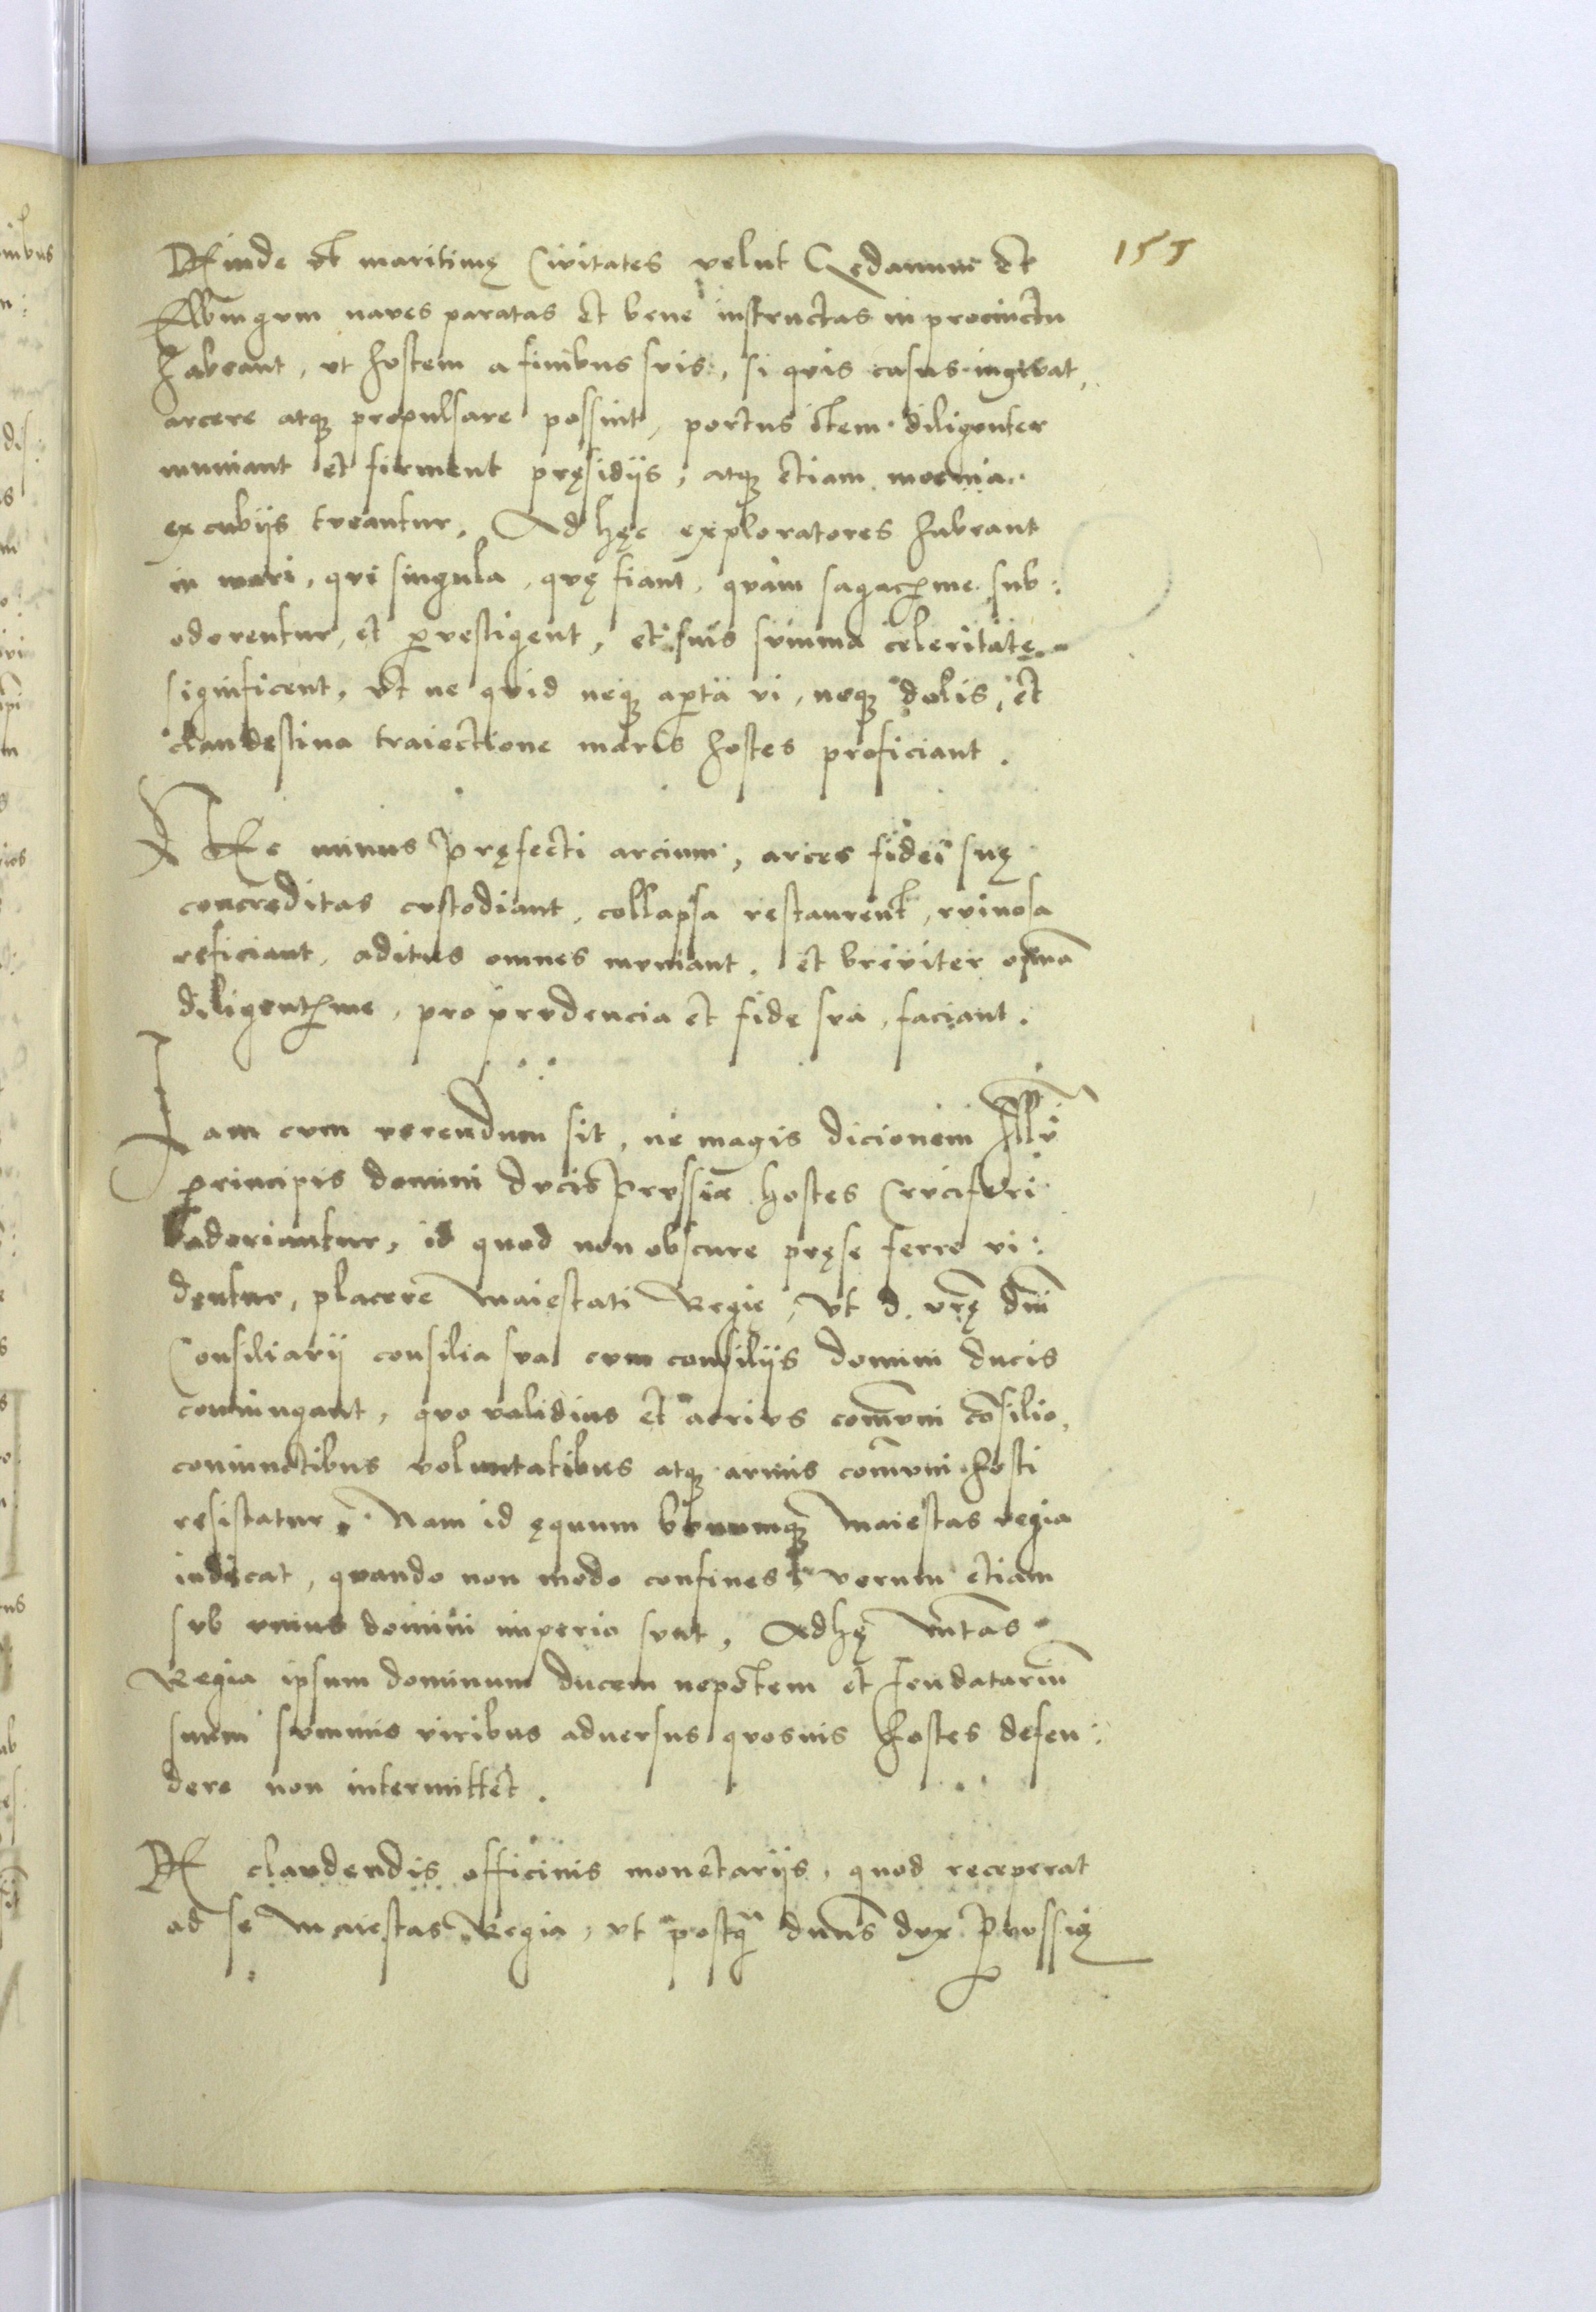 155
DEinde vt maritimę Ciuitates velut Gedanum et
Elbingum naues paratas et bene instructas in procinctu
habeant, vt hostem a finibus suis, si quis casus ingruat,
arcere atq; propulsare possint, portus item diligenter
muniant et firment pręsidijs, atq; etiam moenia
excubijs tueantur, Ad hęc exploratores habeant
in mari, qui singula, quę fiant, quàm sagaciss:me sub:
odorentur, et peruestigent, et suis summa celeritate
significent, vt ne quid neq; aperta vi, neq; dolis, et
clandestina traiectione maris hostes proficiant.
NEc minus Pręfecti arcium, arces fidei suę
concreditas custodiant, collapsa restaurent, ruinosa
reficiant, aditus omnes muniant, et breuiter omnia
diligentiss:me, pro prudencia et fide sua, faciant.
Iam cum verendum sit, ne magis dicionem Illmi
principis domini ducis Prussiæ hostes Cruciferi
adoriantur, id quod non obscure pręse ferre vi:
dentur, placere Maiestati Regię, vt d. vrę dni
Consiliarij consilia sua cum consilijs domini ducis
coniungant, quo validius et acrius comuni cosilio,
coniunctibus voluntatibus atq; armis comuni hosti
resistatur, Nam id ęquum bonumq; Maiestas regia
iudicat, quando non modo confines verum etiam
sub vnius domini imperio sunt, Adhę Mtas
Regia ipsum dominum ducem nepotem et feudatariu
suum summis viribus aduersus quosuis hostes defen:
dere non intermittet.
DE claudendis officinis monetarijs, quod receperat
ad se Maiestas Regia, vt postq dnns dux Prussię